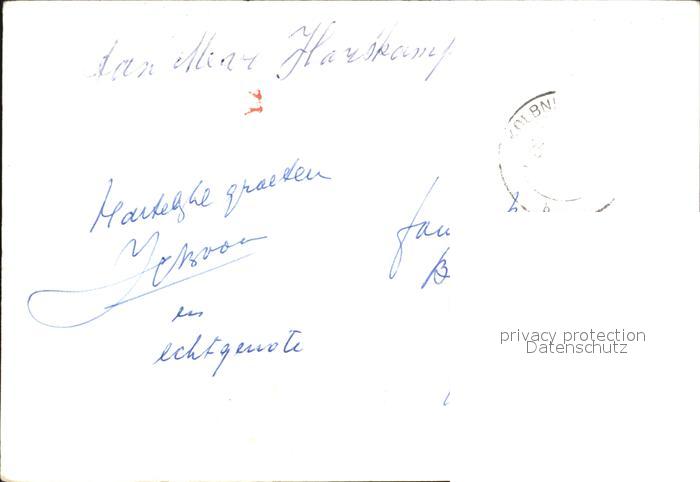 aan Mevr Harskamp
Hartelijke groeten
en
echtgenote
fam
B
KOLBN
privacy protection
Datenschutz